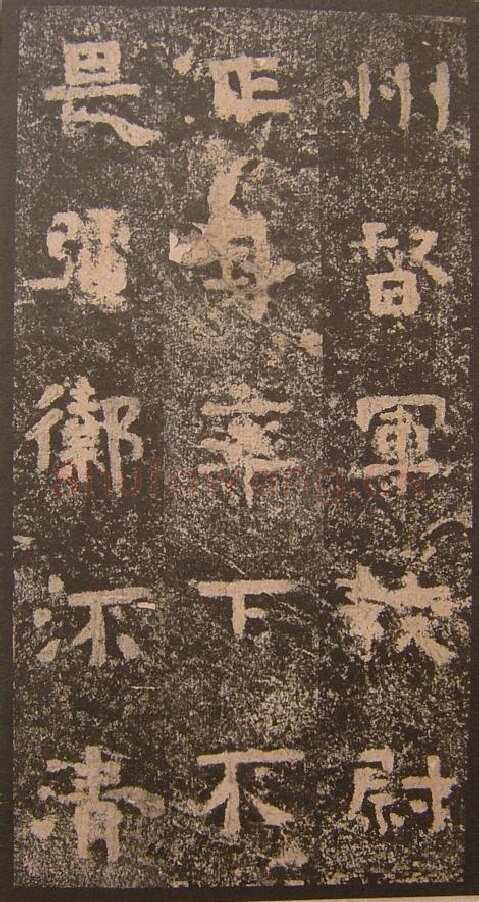 州督軍校尉
正身率下不
畏彊御清